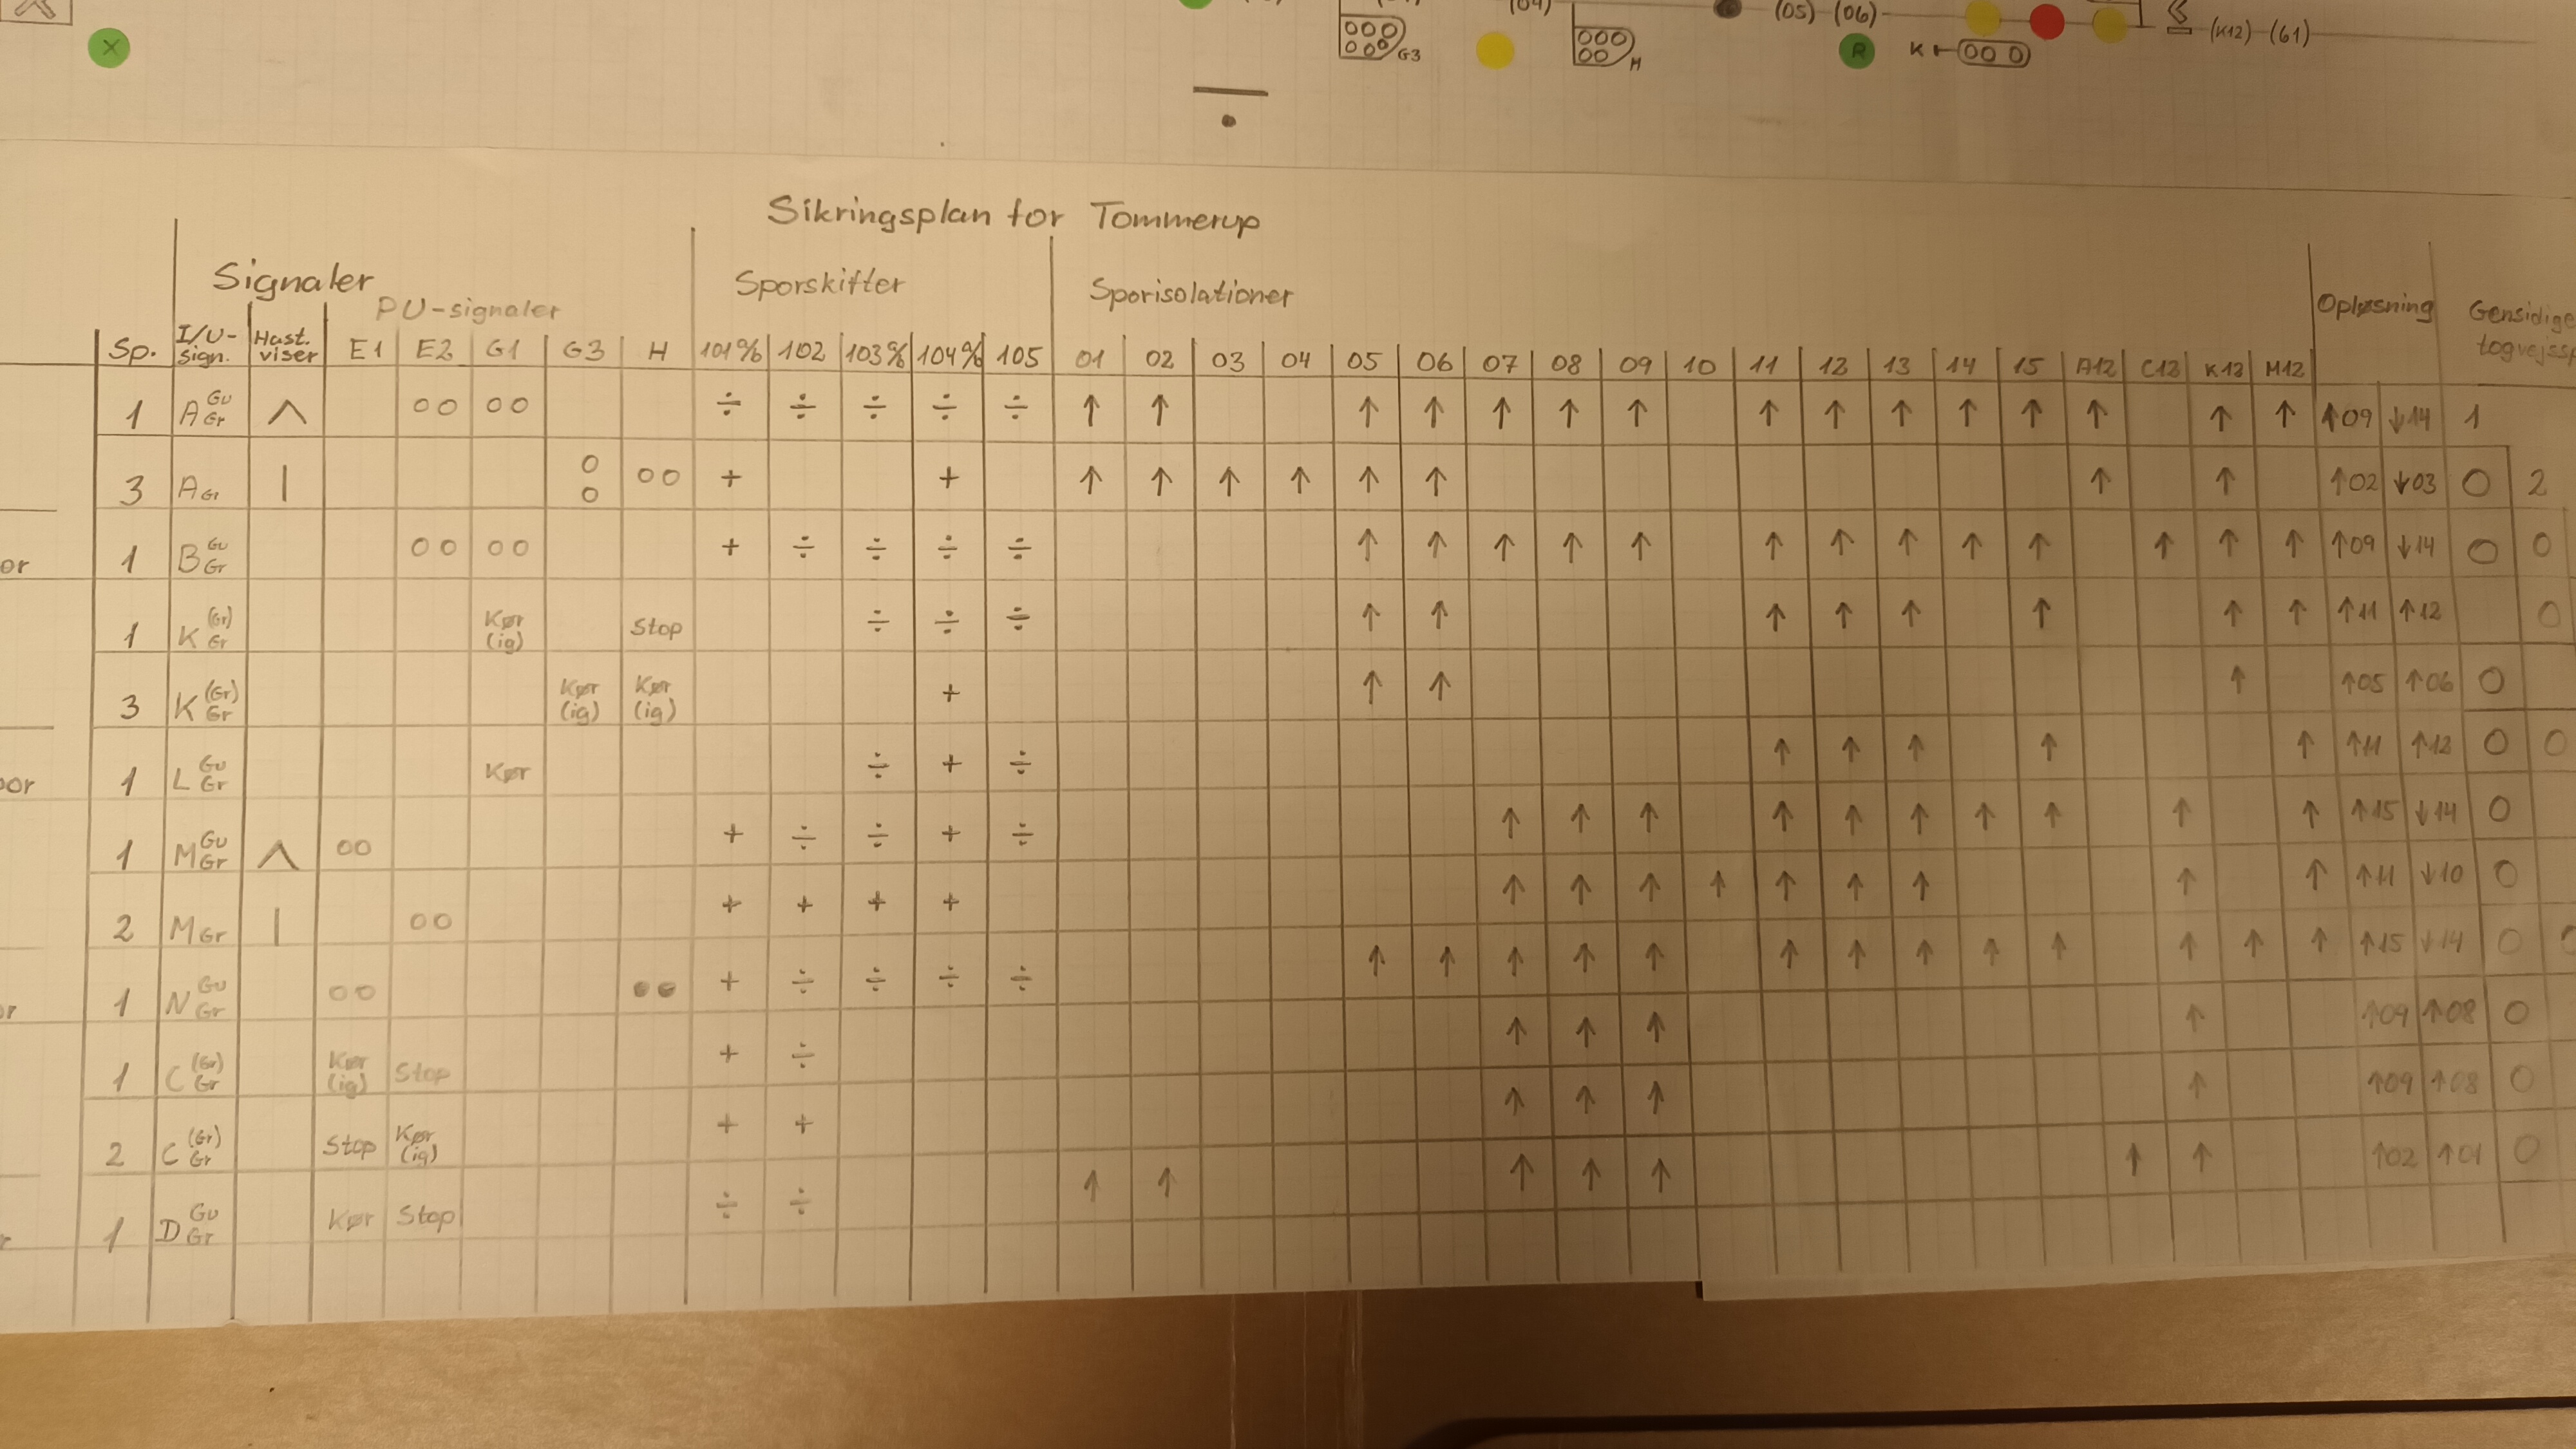 X
G3
(04)
M
(05) (06)
R
K
(K12) (61)
Sikringsplan for Tommerup
Signaler
PU-signaler
Sporskifter
Sporisolationer
Opløsning
Gensidige
togvejssp
Sp. I/U-sign. Hast.viser E1 E2 G1 G3 H 101% 102 103% 104% 105 01 02 03 04 05 06 07 08 09 10 11 12 13 14 15 A12 C12 K12 M12
1 A Gu Gr ∧ oo oo ÷ ÷ ÷ ÷ ÷ ↑ ↑ ↑ ↑ ↑ ↑ ↑ ↑ ↑ ↑ ↑ ↑ ↑ ↑ ↑ ↑09 ↓14 1
3 A Gr | o o oo + + ↑ ↑ ↑ ↑ ↑ ↑ ↑ ↑ ↑02 ↓03 O 2
or 1 B Gu Gr oo oo + ÷ ÷ ÷ ÷ ↑ ↑ ↑ ↑ ↑ ↑ ↑ ↑ ↑ ↑ ↑ ↑ ↑ ↑09 ↓14 O O
1 K (Gr) Gr Kør (ig) Stop ÷ ÷ ÷ ↑ ↑ ↑ ↑ ↑ ↑ ↑ ↑ ↑11 ↑12 O
3 K (Gr) Gr Kør (ig) Kør (ig) + ↑ ↑ ↑ ↑05 ↑06 O
or 1 L Gu Gr Kør ÷ + ÷ ↑ ↑ ↑ ↑ ↑ ↑11 ↑12 O O
1 M Gu Gr ∧ oo + ÷ ÷ + ÷ ↑ ↑ ↑ ↑ ↑ ↑ ↑ ↑ ↑ ↑ ↑15 ↓14 O
2 M Gr | oo + + + + ↑ ↑ ↑ ↑ ↑ ↑ ↑ ↑ ↑ ↑11 ↓10 O
r 1 N Gu Gr oo ●● + ÷ ÷ ÷ ÷ ↑ ↑ ↑ ↑ ↑ ↑ ↑ ↑ ↑ ↑ ↑ ↑ ↑ ↑15 ↓14 O O
1 C (Gr) Gr Kør (ig) Stop + ÷ ↑ ↑ ↑ ↑ ↑09 ↑08 O
2 C (Gr) Gr Stop Kør (ig) + + ↑ ↑ ↑ ↑ ↑09 ↑08 O
r 1 D Gu Gr Kør Stop ÷ ÷ ↑ ↑ ↑ ↑ ↑ ↑ ↑ ↑02 ↑01 O